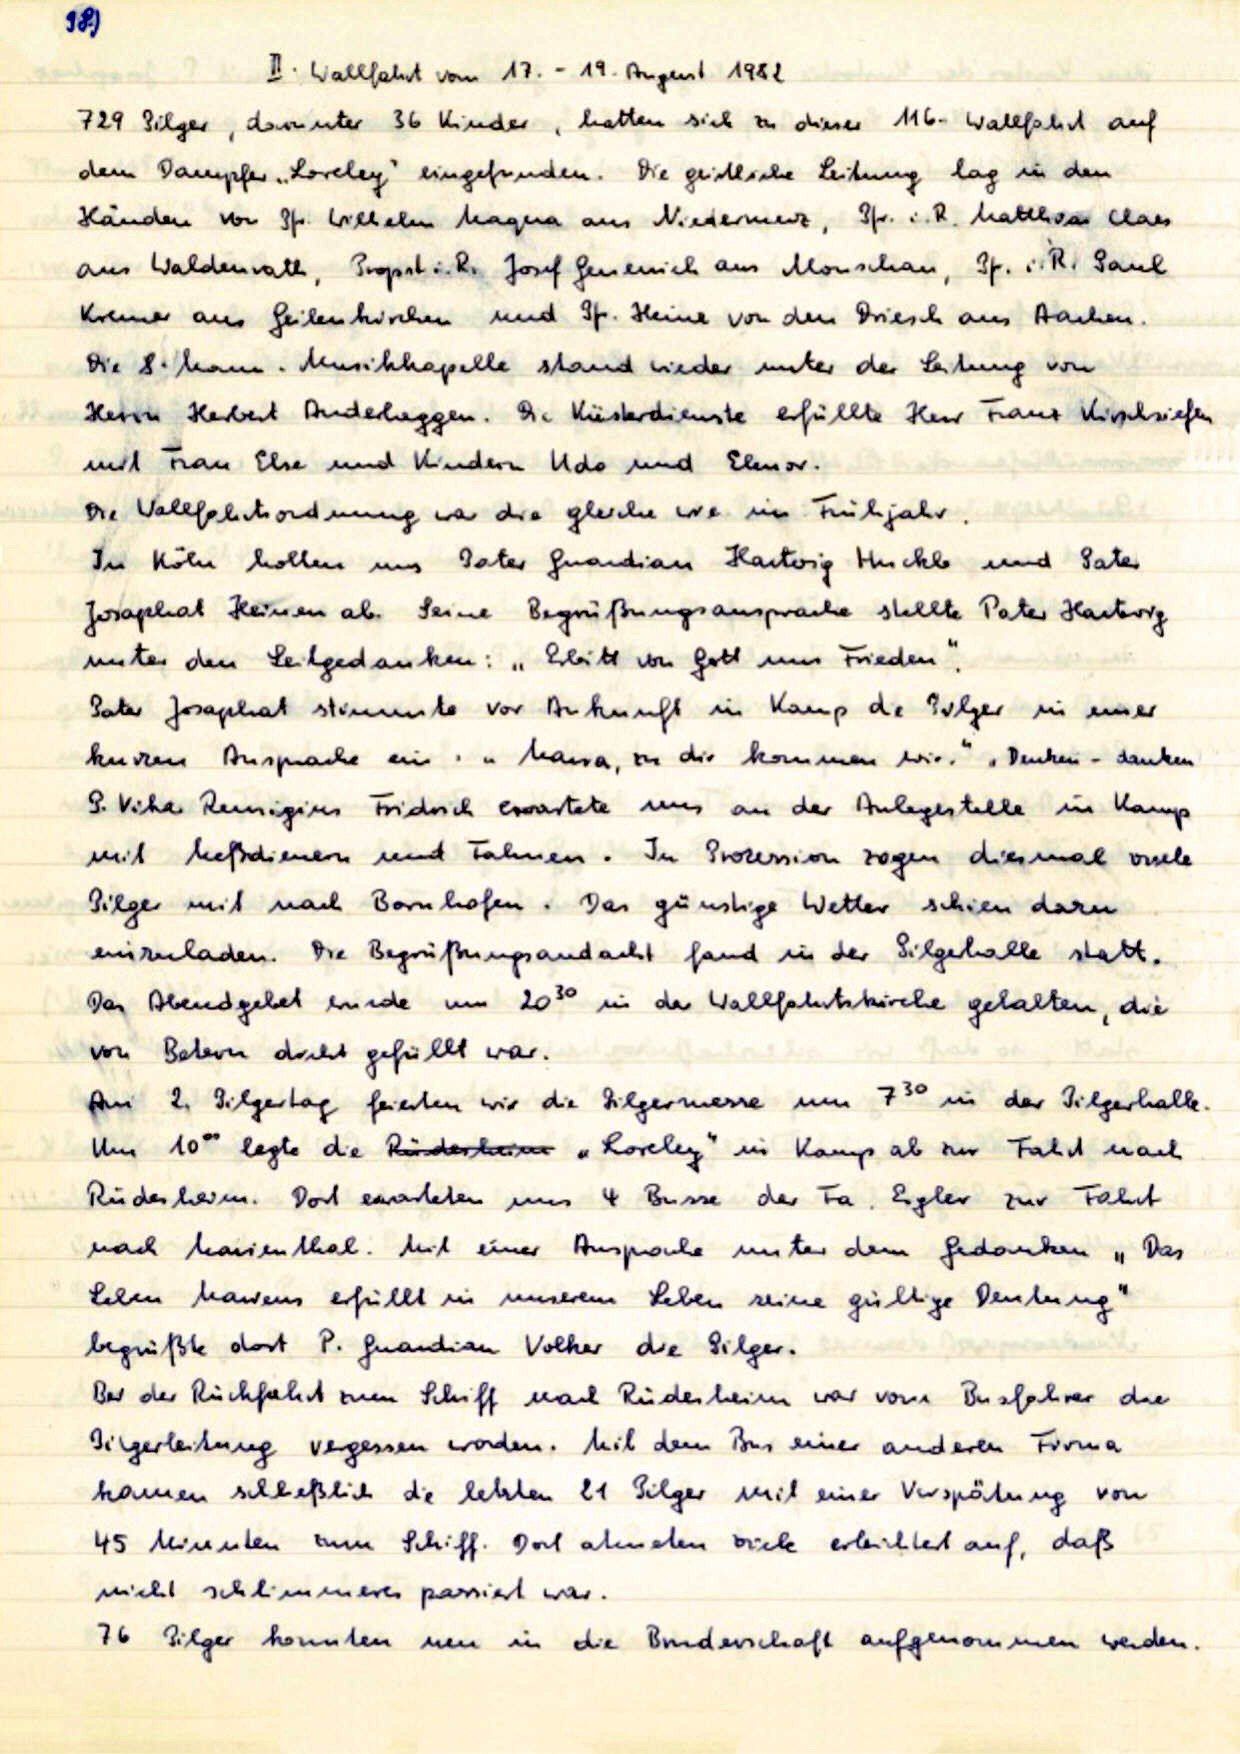 98)
II. Wallfahrt vom 17. - 19. August 1982
729 Pilger, darunter 36 Kinder, hatten sich zu dieser 116. Wallfahrt auf
dem Dampfer „Loreley" eingefunden. Die geistliche Leitung lag in den
Händen von Pf. Wilhelm Maqua aus Niedermerz, Pfr. i. R. Matthias Claes
aus Waldenrath, Propst i. R. Josef Genenich aus Monschau, Pf. i. R. Paul
Kremer aus Geilenkirchen und Pf. Heine von den Driesch aus Aachen.
Die 8. Mann. Musikkapelle stand wieder unter der Leitung von
Herrn Herbert Anderheggen. Die Küsterdienste erfüllte Herr Franz Kirschsiefen
mit Frau Else und Kindern Udo und Elenor.
Die Wallfahrtsordnung war die gleiche wie im Frühjahr.
In Köln holten uns Pater Guardian Hartwig Huckle und Pater
Josaphat Heinen ab. Seine Begrüßungsansprache stellte Pater Hartwig
unter den Leitgedanken: „Erbitt von Gott uns Frieden".
Pater Josaphat stimmte vor Ankunft in Kamp die Pilger in einer
kurzen Ansprache ein. „Maria, zu dir kommen wir." „Denken - danken
P. Vikar Remigius Fridrich erwartete uns an der Anlegestelle in Kamp
mit Meßdienern und Fahnen. In Prozession zogen diesmal viele
Pilger mit nach Bornhofen. Das günstige Wetter schien dazu
einzuladen. Die Begrüßungsandacht fand in der Pilgerhalle statt.
Das Abendgebet wurde um 20³⁰ in der Wallfahrtskirche gehalten, die
von Betern dicht gefüllt war.
Am 2. Pilgertag feierten wir die Pilgermesse um 7³⁰ in der Pilgerhalle.
Um 10⁰⁰ legte die Rüdesheim „Loreley" in Kamp ab zur Fahrt nach
Rüdesheim. Dort erwarteten uns 4 Busse der Fa. Engler zur Fahrt
nach Marienthal. Mit einer Ansprache unter dem Gedanken „Das
Leben Mariens erfüllt in unserem Leben seine gültige Deutung"
begrüßte dort P. Guardian Volker die Pilger.
Bei der Rückfahrt zum Schiff nach Rüdesheim war vom Busfahrer die
Pilgerleitung vergessen worden. Mit dem Bus einer anderen Firma
kamen schließlich die letzten 21 Pilger mit einer Verspätung von
45 Minuten zum Schiff. Dort atmeten viele erleichtert auf, daß
nicht schlimmeres passiert war.
76 Pilger konnten neu in die Bruderschaft aufgenommen werden.